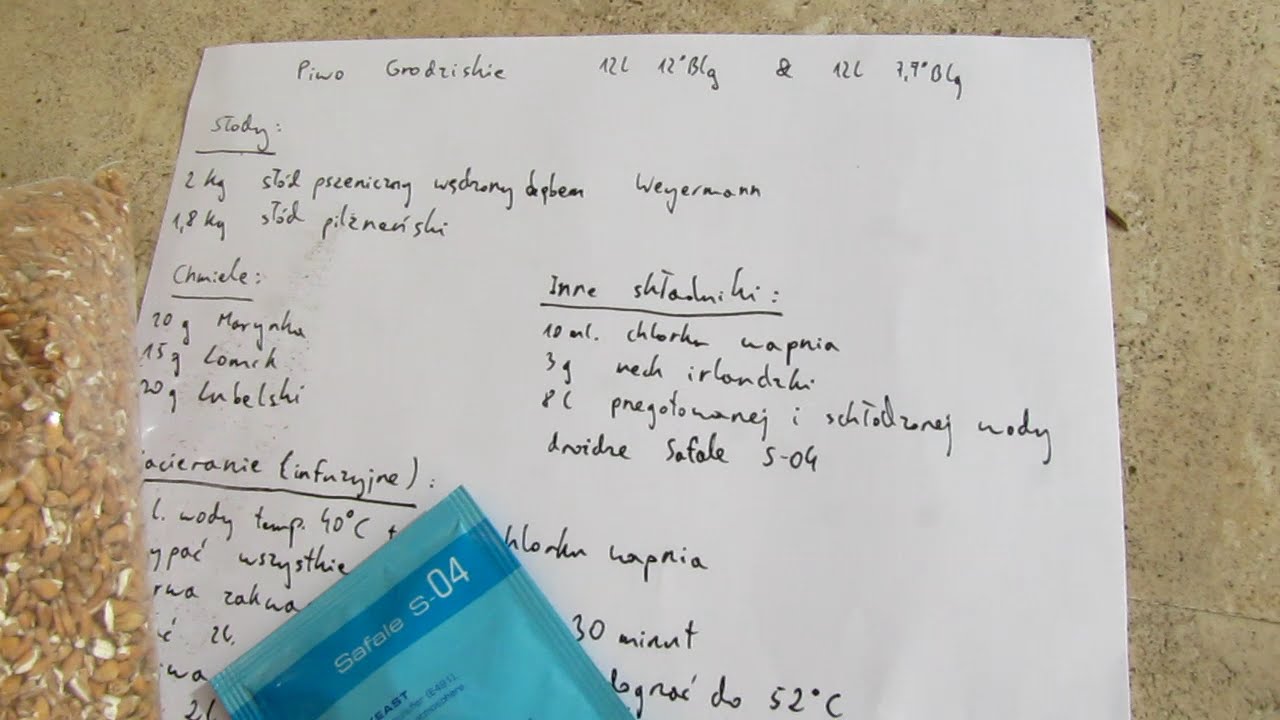 Piwo Grodziskie 12l 12°Blg & 12l 7,7°Blg
słody:
2 kg słód pszeniczny wędzony dębem Weyermann
1,8 kg słód pilzneński
Chmiele:
20 g Marynka
15 g Lomik
20 g Lubelski
Inne składniki:
10 ml. chlorku wapnia
3 g mech irlandzki
8 l pregotowanej i schłodzonej wody
drożdże Safale S-04
acieranie (infuzyjne):
l. wody temp. 40°C chlorku wapnia
ypać wszystkie
rwa zakwa
ć 2l. 30 minut
iwa ognać do 52°C
2l.
Safale S-04
YEAST
(E491)